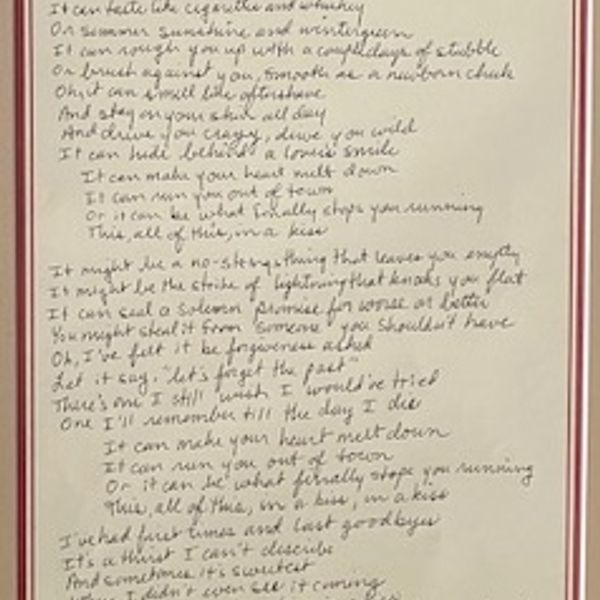 It can taste like cigarettes and whiskey
Or summer sunshine and wintergreen
It can rough you up with a couple days of stubble
Or brush against you, smooth as a newborn cheek
Oh, it can smell like aftershave
And stay on your skin all day
And drive you crazy, drive you wild
It can hide behind a lover's smile
It can make your heart melt down
It can run you out of town
Or it can be what finally stops you running
This, all of this, in a kiss
It might be a no-strings thing that leaves you empty
It might be the strike of lightning that knocks you flat
It can seal a solemn promise for worse or better
You might steal it from someone you shouldn't have
Oh, I've felt it be forgiveness asked
Let it say, "let's forget the past"
There's one I still wish I would've tried
One I'll remember till the day I die
It can make your heart melt down
It can run you out of town
Or it can be what finally stops you running
This, all of this, in a kiss, in a kiss
I've had first times and last goodbyes
It's a thirst I can't describe
And sometimes it's sweetest
When I didn't even see it coming